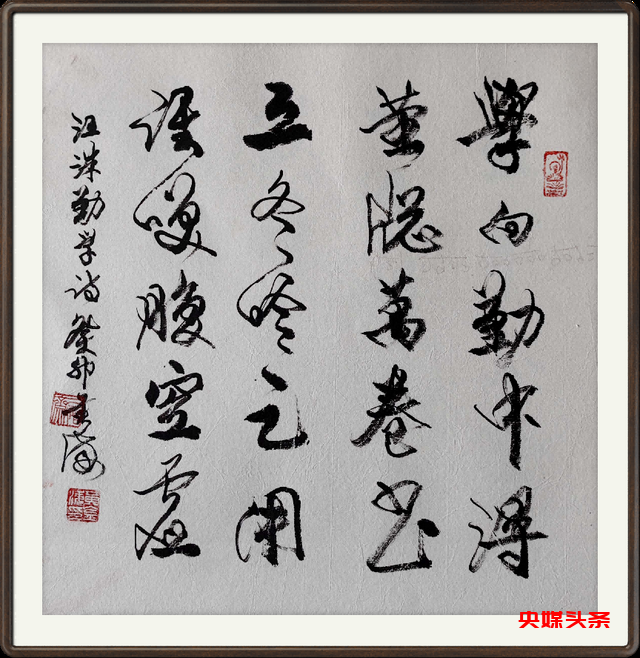 學向勤中得
萤牕萬卷书
三冬足用
谁咲腹空虚
汪洙勤学诗癸卯
央媒头条